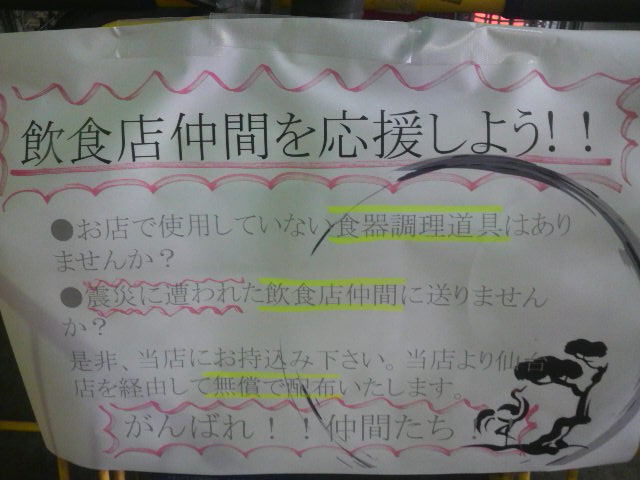 飲食店仲間を応援しよう!!
●お店で使用していない食器調理道具はあり
ませんか?
●震災に遭われた飲食店仲間に送りません
か?
是非、当店にお持込み下さい。当店より仙台
店を経由して無償で配布いたします。
がんばれ!!仲間たち!